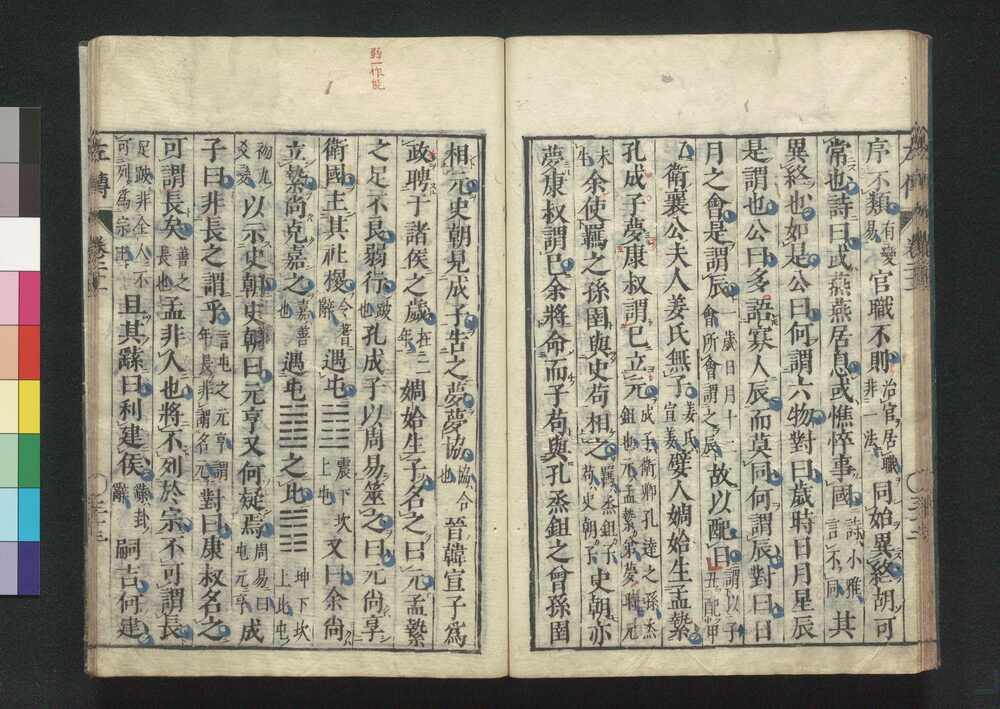 序不類有變易官職不則治官居職非一法同始異終胡可
常也詩曰或燕燕居息或憔悴事國詩小雅言不同其
異終也如是公曰何謂六物對曰歲時日月星辰
是謂也公曰多語寡人辰而莫同何謂辰對曰日
月之會是謂辰一歲日月十二會所會謂之辰故以配日謂以子丑配甲乙
衛襄公夫人姜氏無子姜氏宣姜嬖人婤姶生孟縶
孔成子夢康叔謂己立元成子衛卿孔達之孫烝鉏也元孟縶弟夢時元未生
余使羈之孫圉與史苟相之羈烝鉏子苟史朝子史朝亦
夢康叔謂己余將命而子苟與孔烝鉏之曾孫圉
相元史朝見成子告之夢夢協協合也晉韓宣子爲
政聘于諸侯之歲在二年婤姶生子名之曰元孟縶
之足不良弱行跛也孔成子以周易筮之曰元尚享
衛國主其社稷令蓍辭遇屯震下坎上屯又曰余尚
立縶尚克嘉之嘉善也遇屯之比坤下坎上比屯
初九爻變以示史朝史朝曰元亨又何疑焉周易曰屯元亨成
子曰非長之謂乎言屯之元亨謂年長非謂名元對曰康叔名之
可謂長矣善之長也孟非人也將不列於宗不可謂長
足跛非全人不可列爲宗主且其繇曰利建侯繇卦辭嗣吉何建
弱一作能
左傳
卷二十一